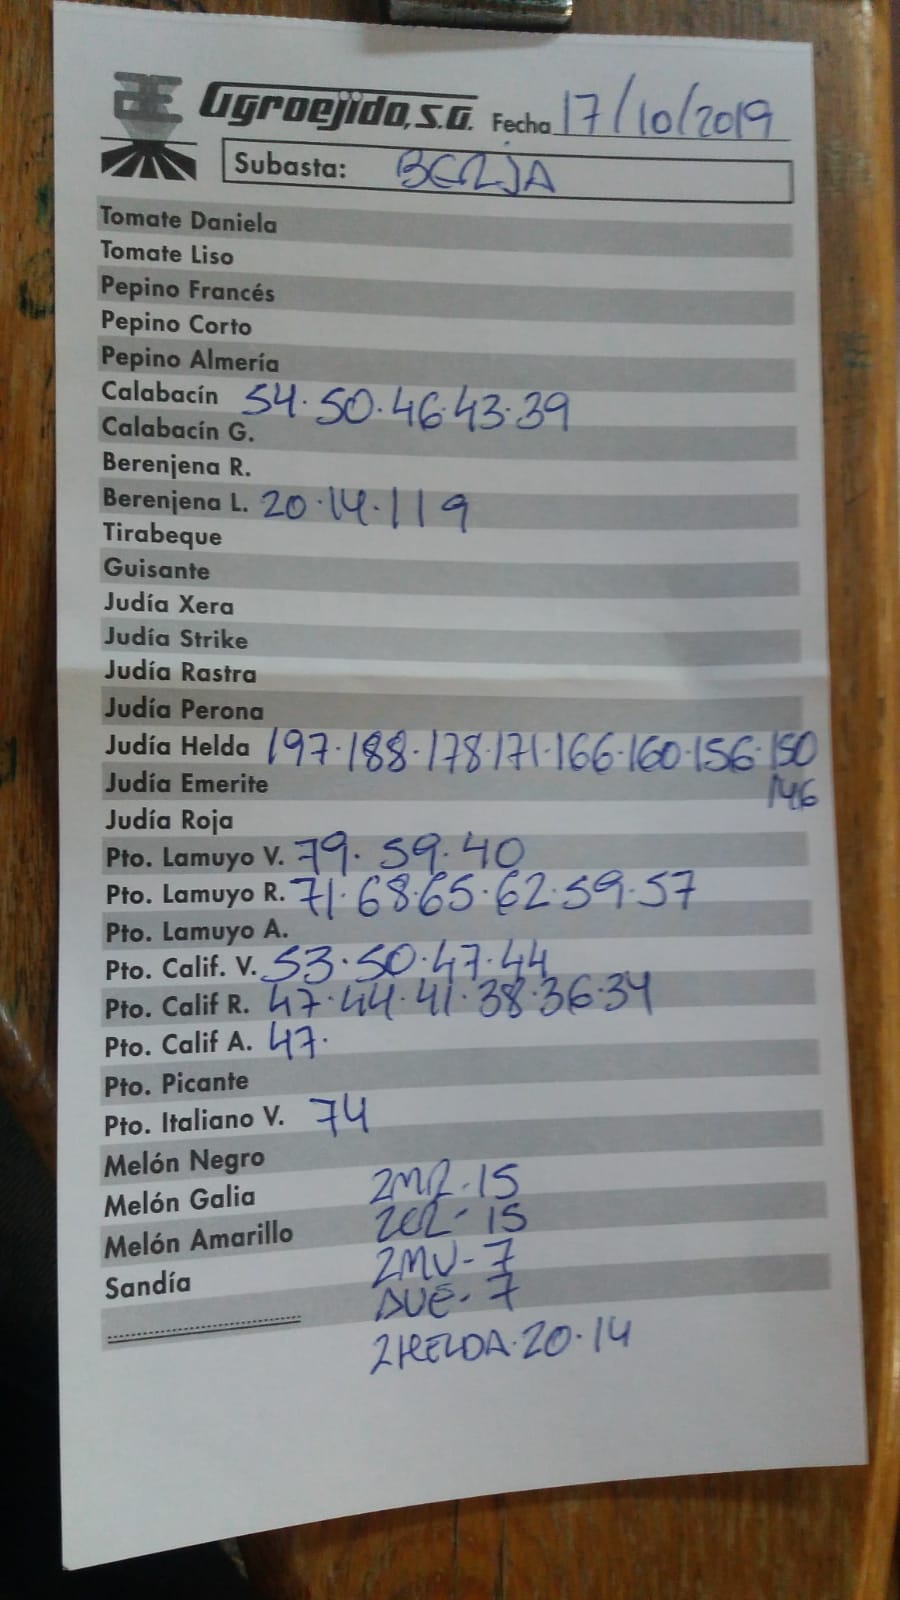 Agroejido, S.A. Fecha 17/10/2019
Subasta: BERJA
Tomate Daniela
Tomate Liso
Pepino Francés
Pepino Corto
Pepino Almería
Calabacín 54. 50. 46. 43. 39
Calabacín G.
Berenjena R.
Berenjena L. 20. 14. 11 9
Tirabeque
Guisante
Judía Xera
Judía Strike
Judía Rastra
Judía Perona
Judía Helda 197. 188. 178. 171. 166. 160. 156. 150
146
Judía Emerite
Judía Roja
Pto. Lamuyo V. 79. 59. 40
Pto. Lamuyo R. 71. 68. 65. 62. 59. 57
Pto. Lamuyo A.
Pto. Calif. V. 53. 50. 47. 44
Pto. Calif R. 47. 44. 41. 38. 36. 34
Pto. Calif A. 47.
Pto. Picante
Pto. Italiano V. 74
Melón Negro
Melón Galia 2MR. 15
Melón Amarillo 2CR- 15
Sandía 2MV- 7
AVE. 7
2HELDA. 20. 14